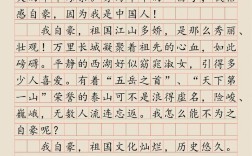 感自豪，因为我是中国人！
我自豪，祖国江山多娇，是那么秀丽、
壮观！万里长城凝聚着祖先的心血，如此
磅礴。平静的西湖好似窈窕淑女，引得多
少人喜爱。有着“五岳之首”、“天下第
一山”荣誉的泰山可不是浪得虚名，险峻、
巍峨，无数人流连忘返。我怎么能不为之
自豪呢？
我自豪，祖国文化灿烂，历史悠久。